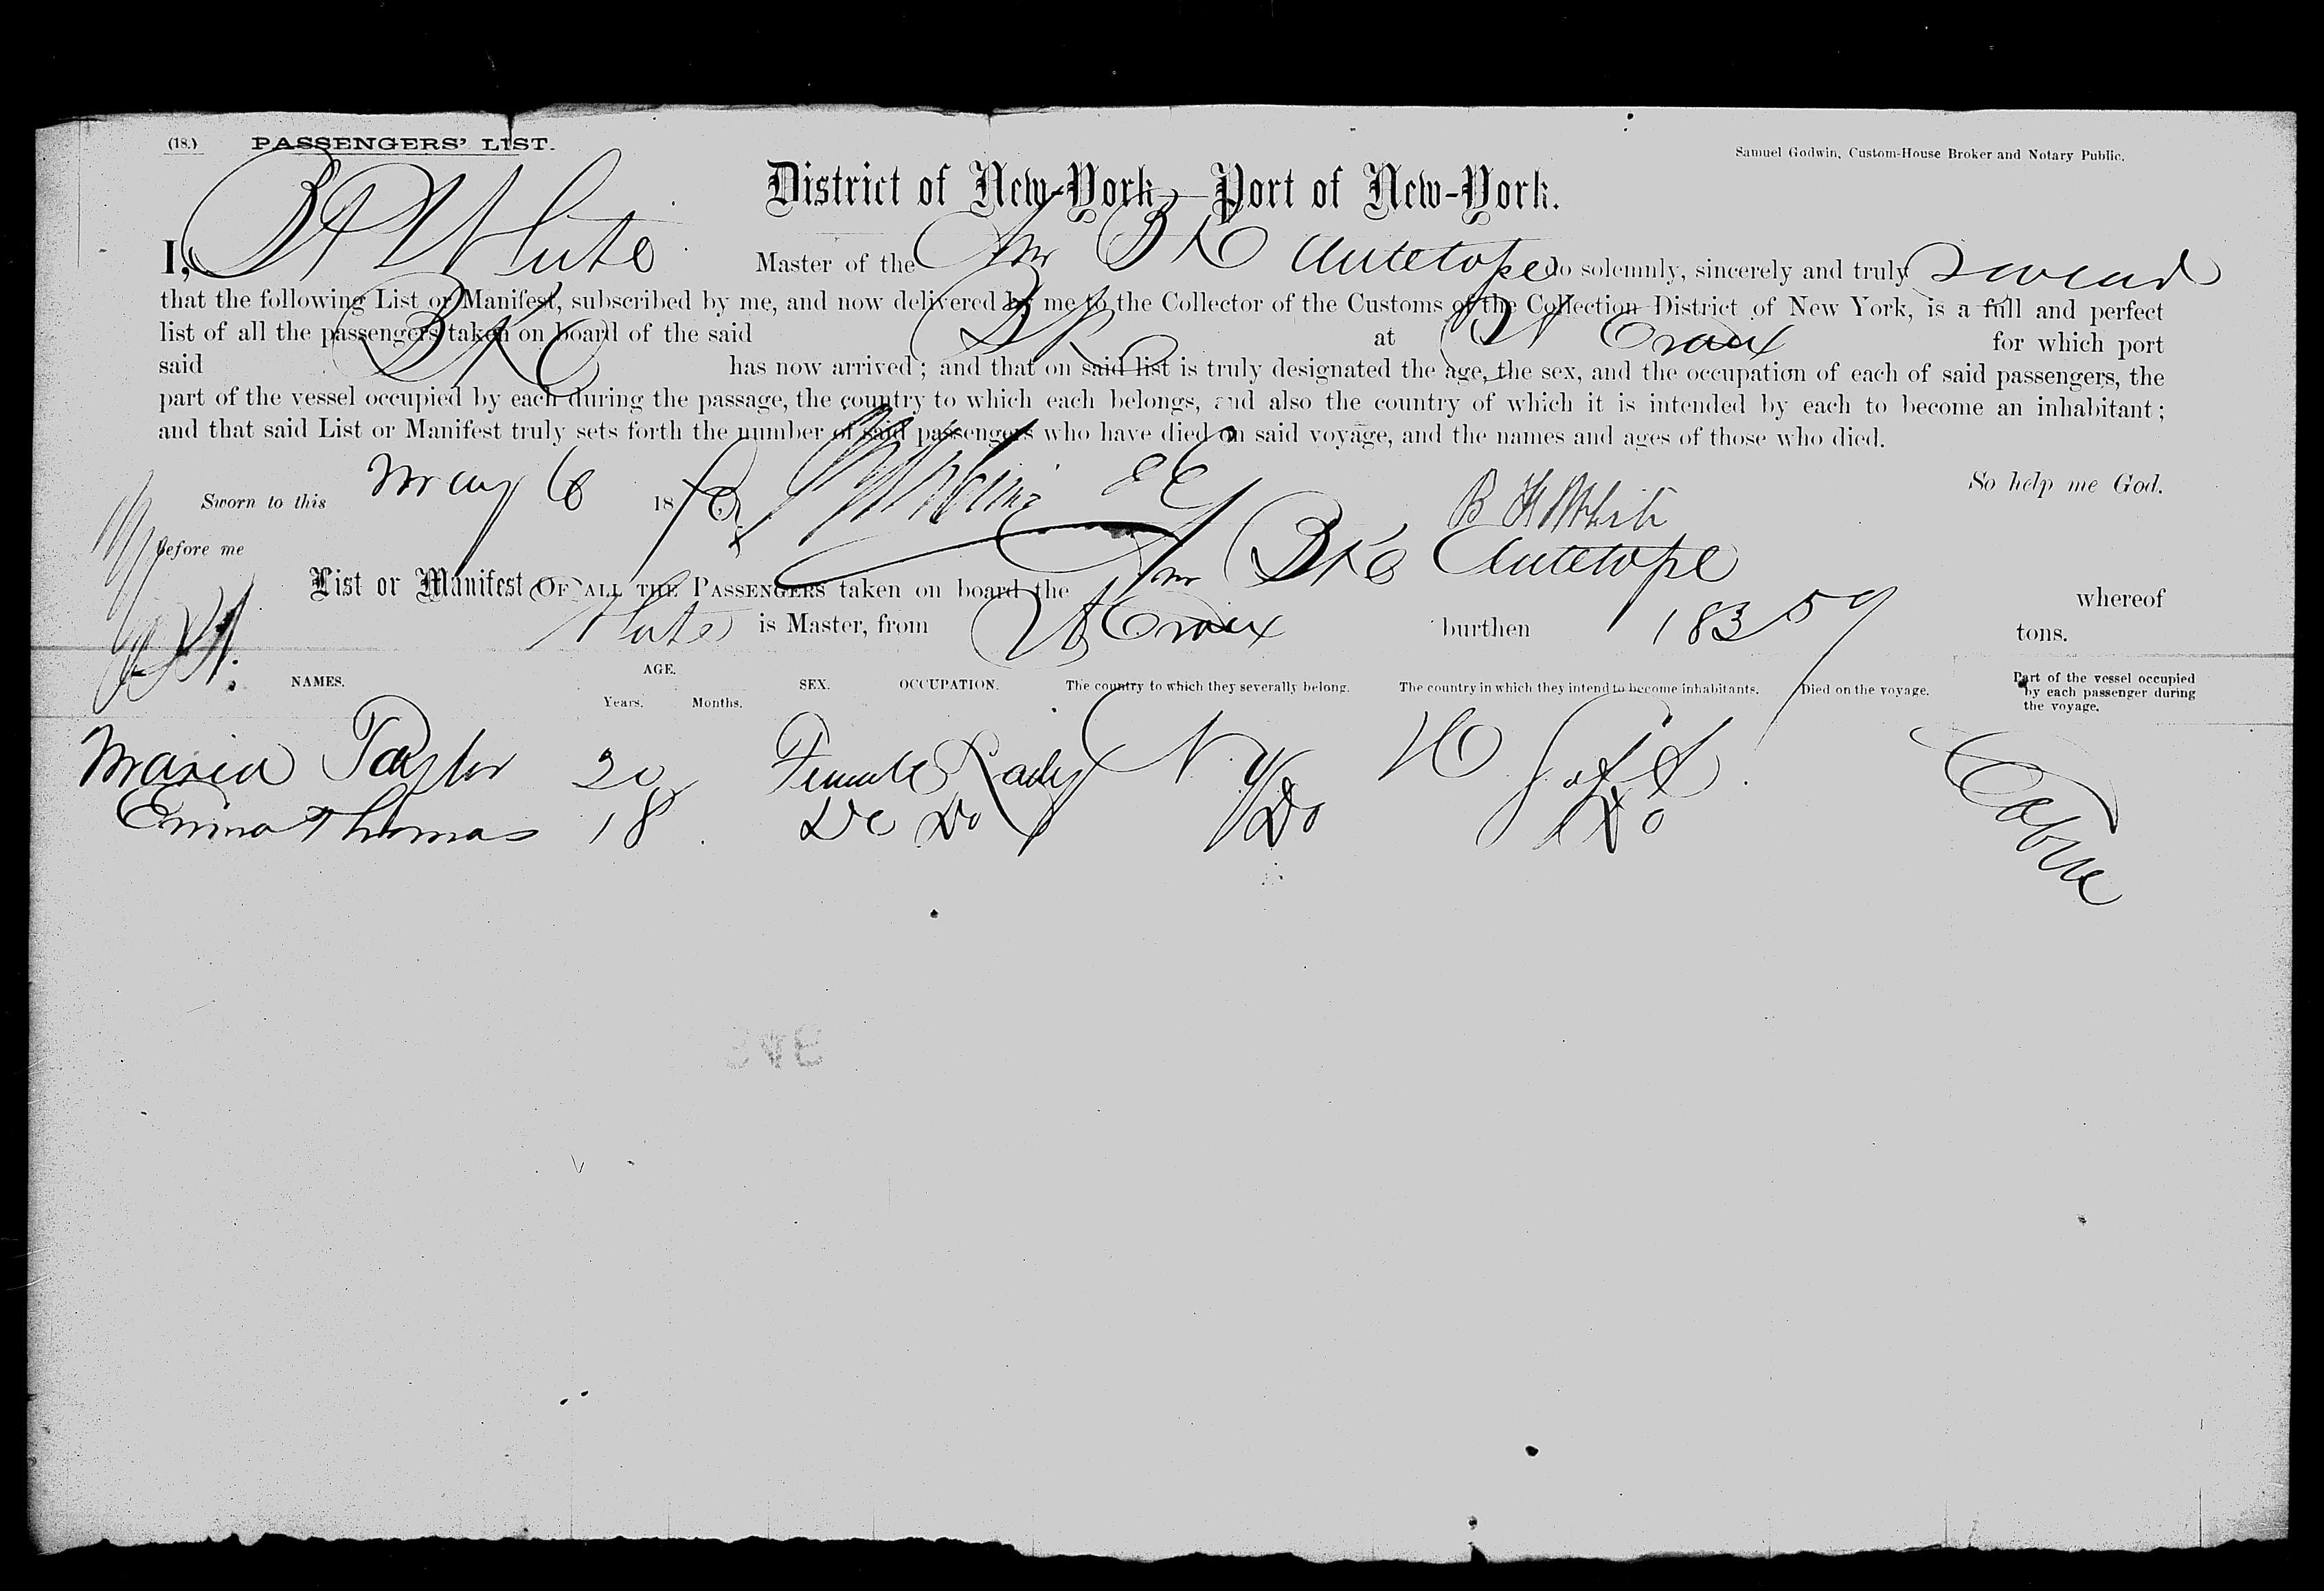 (18.) PASSENGERS' LIST.
Samuel Godwin, Custom-House Broker and Notary Public.
District of New-York—Port of New-York.
I, B H White Master of the Am Bk Antelope do solemnly, sincerely and truly swear
that the following List or Manifest, subscribed by me, and now delivered by me to the Collector of the Customs of the Collection District of New York, is a full and perfect
list of all the passengers taken on board of the said Bk at St Croix for which port
said Bk has now arrived; and that on said list is truly designated the age, the sex, and the occupation of each of said passengers, the
part of the vessel occupied by each during the passage, the country to which each belongs, and also the country of which it is intended by each to become an inhabitant;
and that said List or Manifest truly sets forth the number of said passengers who have died on said voyage, and the names and ages of those who died.
So help me God.
Sworn to this May 6 18
B H White
Before me
List or Manifest OF ALL THE PASSENGERS taken on board the Am Bk Antelope whereof
White is Master, from St Croix burthen 183 59 tons.
NAMES. AGE. Years. Months. SEX. OCCUPATION. The country to which they severally belong. The country in which they intend to become inhabitants. Died on the voyage. Part of the vessel occupied by each passenger during the voyage.
Maria Taylor 20 Female Lady N. Y U S of A Cabin
Emma Thomas 18 Do Do Do Do